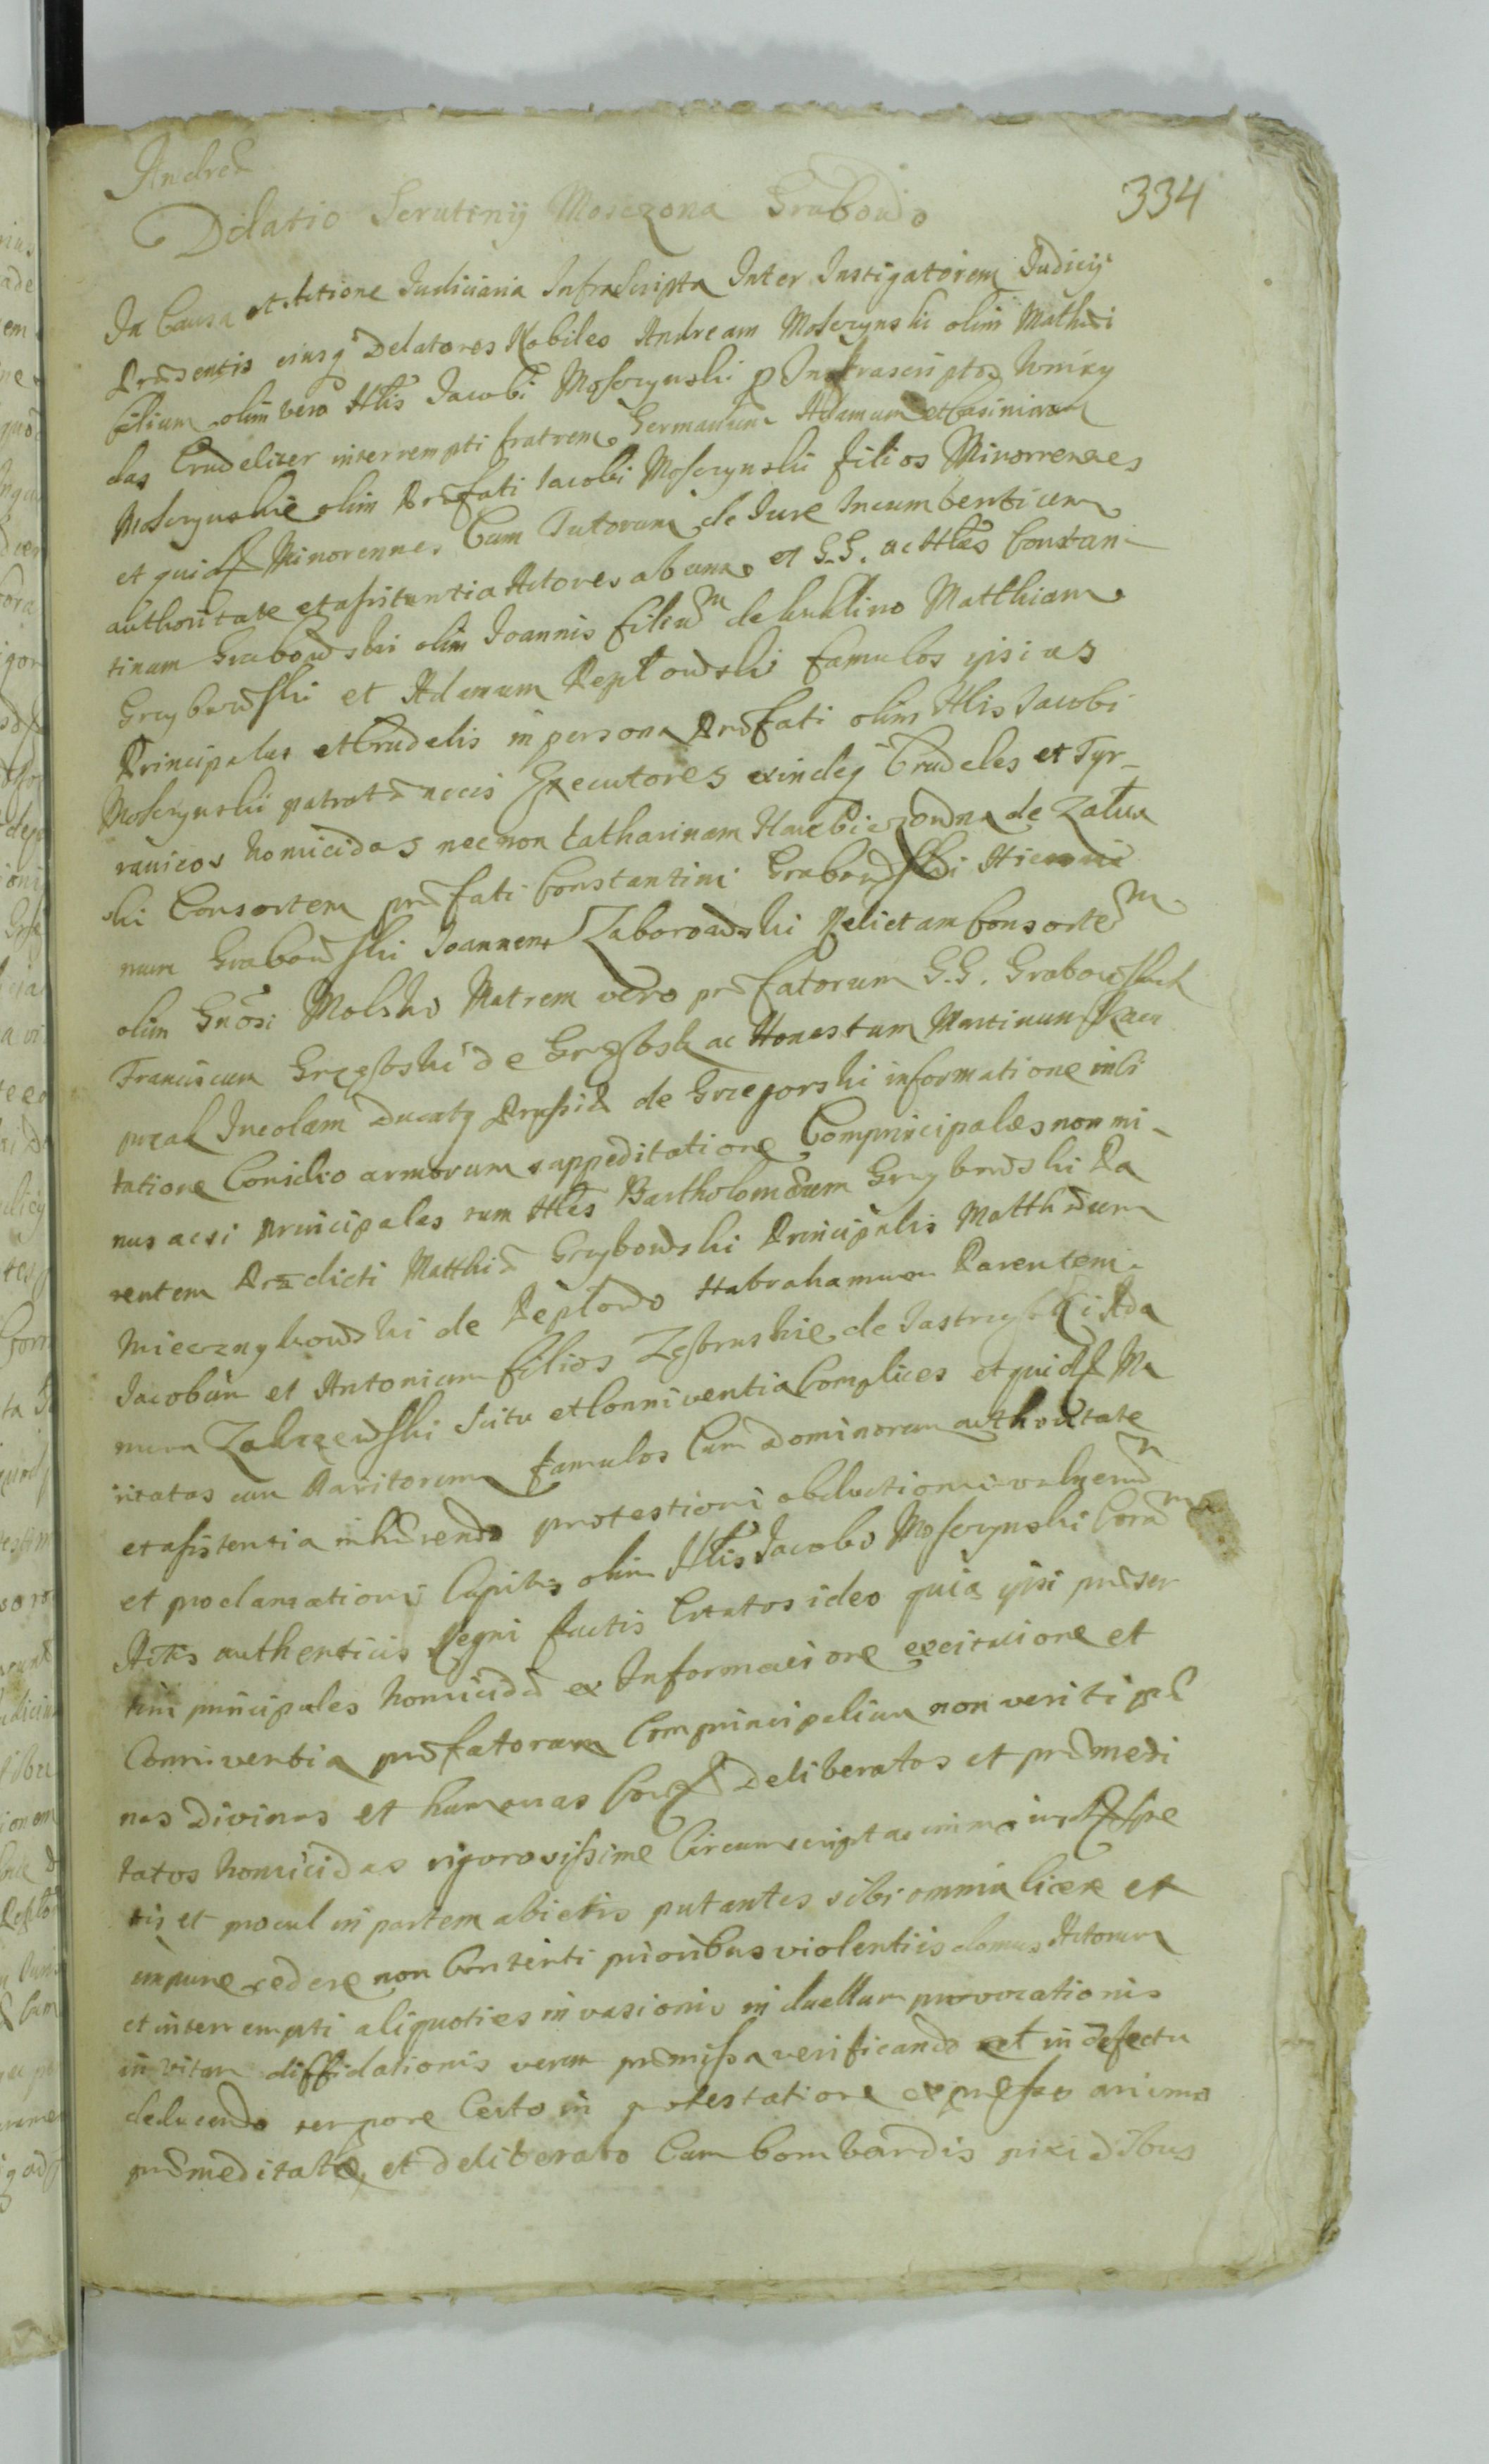 Andreæ
334
Dilatio Scrutinij Mosczona Grabowo
In Causa et Actione Judiciaria Infrascripta Inter Instigatorem Judicij
Præsentis eiusq Delatores Nobiles Andream Mosczynski olim Mathæi
filium olim vero Nlis Jacobi Mosczynski p Infrascriptos homicy
das Crudeliter interrempti fratrem Germanum Adamum et Casimirum
Mosczynskie olim Præfati Jacobi Mosczynski filios Minorennes
et quidem Minorennes Cum Tutorum de Jure Incumbentium
authoritate et assistentia Actores ab una et G.G. ac Nles Constan-
tinum Grabowski olim Joannis filium de Matthiam
Grzybowski et Adamum Reptowski famulos ipsius
Principales et Crudelis in persona Præfati olim Nlis Jacobi
Mosczynski patratæ necis Executores exindeq Crudeles et Tyr-
ranicos homicidas nec non Catharinam de Zalus
ki Consortem præfati Constantini Grabowski Hieroni
mum Grabowski Joannem Zaborowski Relictam Consortem
olim Gnosi Molski Matrem vero præfatorum G.G. Grabowskich
Franciscum Grzębski de Grzębsk ac Honestum Martinum
Incolam Ducatq Prussiæ de Grzegorski informatione inci
tatione Consilio armorum suppeditatione Comprincipales non mi-
nus acsi principales tum Nles Bartholomæum Grzybowski Pa
rentem Prædicti Matthiæ Grzybowski Principalis Matthæum
Miecznykowski de Reptowo Habrahamum Parentem
Jacobum et Antonium filios de Jastrzębki Ada
mum Zakrzewski Scitu et Conniventia Complices et quidem Ma
ritatas cum Maritorum famulos Cum Dominorum authoritate
et assistentia inhærendo protestioni obductioni vulnerum
et proclamationi Capitis olim Nlis Jacobi Mosczynski Coram
Actis authenticis Regni factis Citatos ideo quia ipsi præser
tim principales homicidæ ex Informatione excitatione et
Conniventia præfatorum Comprincipalium non veriti pæ
nas Divinas et humanas Contra deliberatos et præmedi
tatos homicidas rigorosissime Circumscriptas imo iis spre
tis et procul in partem abiectis putantes sibi omnia licere et
impune cedere non Contenti prioribus violentiis domus Actorum
et interrempti aliquoties invasionis in duellum provocationis
in vitam diffidationis verum præmissa verificando et in defectu
deducendo tempore Certo in protestatione expresso animo
præmeditato et deliberato Cum bombardis pixidibus